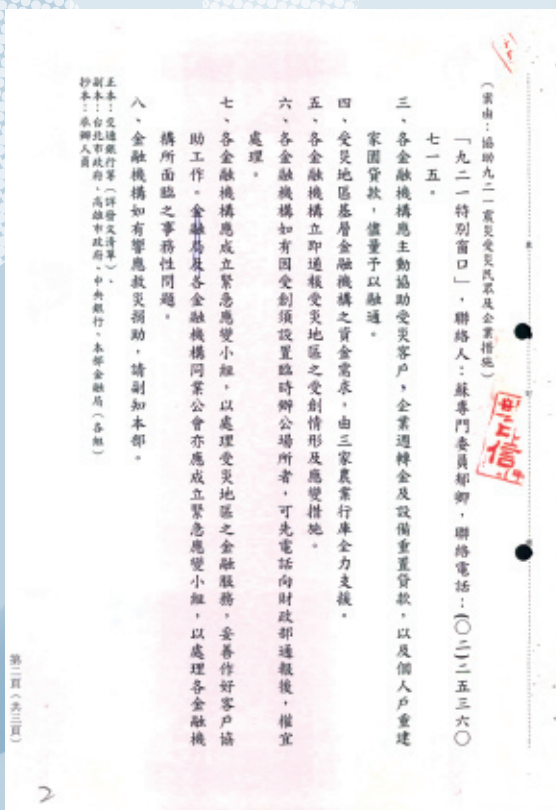 （案由：協助九二一震災受災民眾及企業措施）
「九二一特別窗口」，聯絡人：蘇專門委員郁卿，聯絡電話：(〇二)二五三六〇
七一五。
三、各金融機構應主動協助受災客戶，企業週轉金及設備重置貸款，以及個人戶重建
家園貸款，儘量予以融通。
四、受災地區基層金融機構之資金需求，由三家農業行庫全力支援。
五、各金融機構立即通報受災地區之受創情形及應變措施。
六、各金融機構如有因受創須設置臨時辦公場所者，可先電話向財政部通報後，權宜
處理。
七、各金融機構應成立緊急應變小組，以處理受災地區之金融服務，妥善作好客戶協
助工作。金融局及各金融機構同業公會亦應成立緊急應變小組，以處理各金融機
構所面臨之事務性問題。
八、金融機構如有響應救災捐助，請副知本部。
正本：交通銀行等（詳發文清單）、
副本：台北市政府、高雄市政府、中央銀行、本部金融局（各組）
抄本：承辦人員
第二頁（共三頁）
2